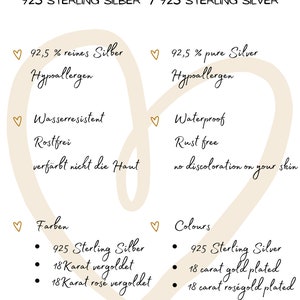 925 STERLING SILBER / 925 STERLING SILVER
92,5 % reines Silber
Hypoallergen
92,5 % pure Silver
Hypoallergen
Wasserresistent
Rostfrei
verfärbt nicht die Haut
Waterproof
Rust free
no discoloration on your skin
Farben
• 925 Sterling Silber
• 18Karat vergoldet
• 18Karat rosé vergoldet
Colours
• 925 Sterling Silver
• 18 carat gold plated
• 18 carat roségold plated